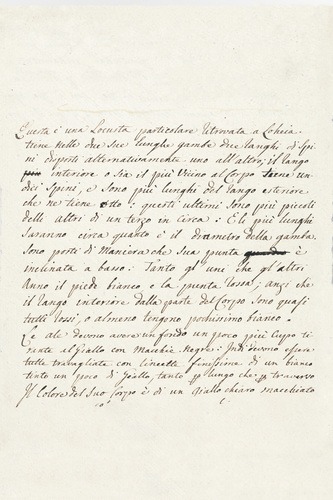 Questa è una Locusta particolare ritrovata a
tiene nelle due sue lunghe gambe due ranghi di Spi
ni disposti alternativamente uno all'altro; il rango
interiore o sia il più vicino al Corpo tiene un
dici Spini, e sono più lunghi del rango esteriore
che ne tiene otto: questi ultimi sono più piccoli
delli altri di un terzo in circa: E li più lunghi
saranno circa quanto è il diametro della gamba.
sono posti di maniera che sua punta è
inclinata a basso: Tanto gl'uni che gl'altri
Anno il piede bianco e la punta rossa; anzi che
il rango interiore dalla parte del Corpo sono quasi
tutti rossi, o almeno tengono pochissimo bianco.
Le ale devono avere un fondo un poco più Cupo ti
rante al Giallo con Macchie Negre: Indi devono essere
tutte travagliate con lineette finissime di un bianco
tinto un poco di Giallo, tanto p lungo che p traverso
Il Colore del suo Corpo è di un Giallo chiaro macchiato